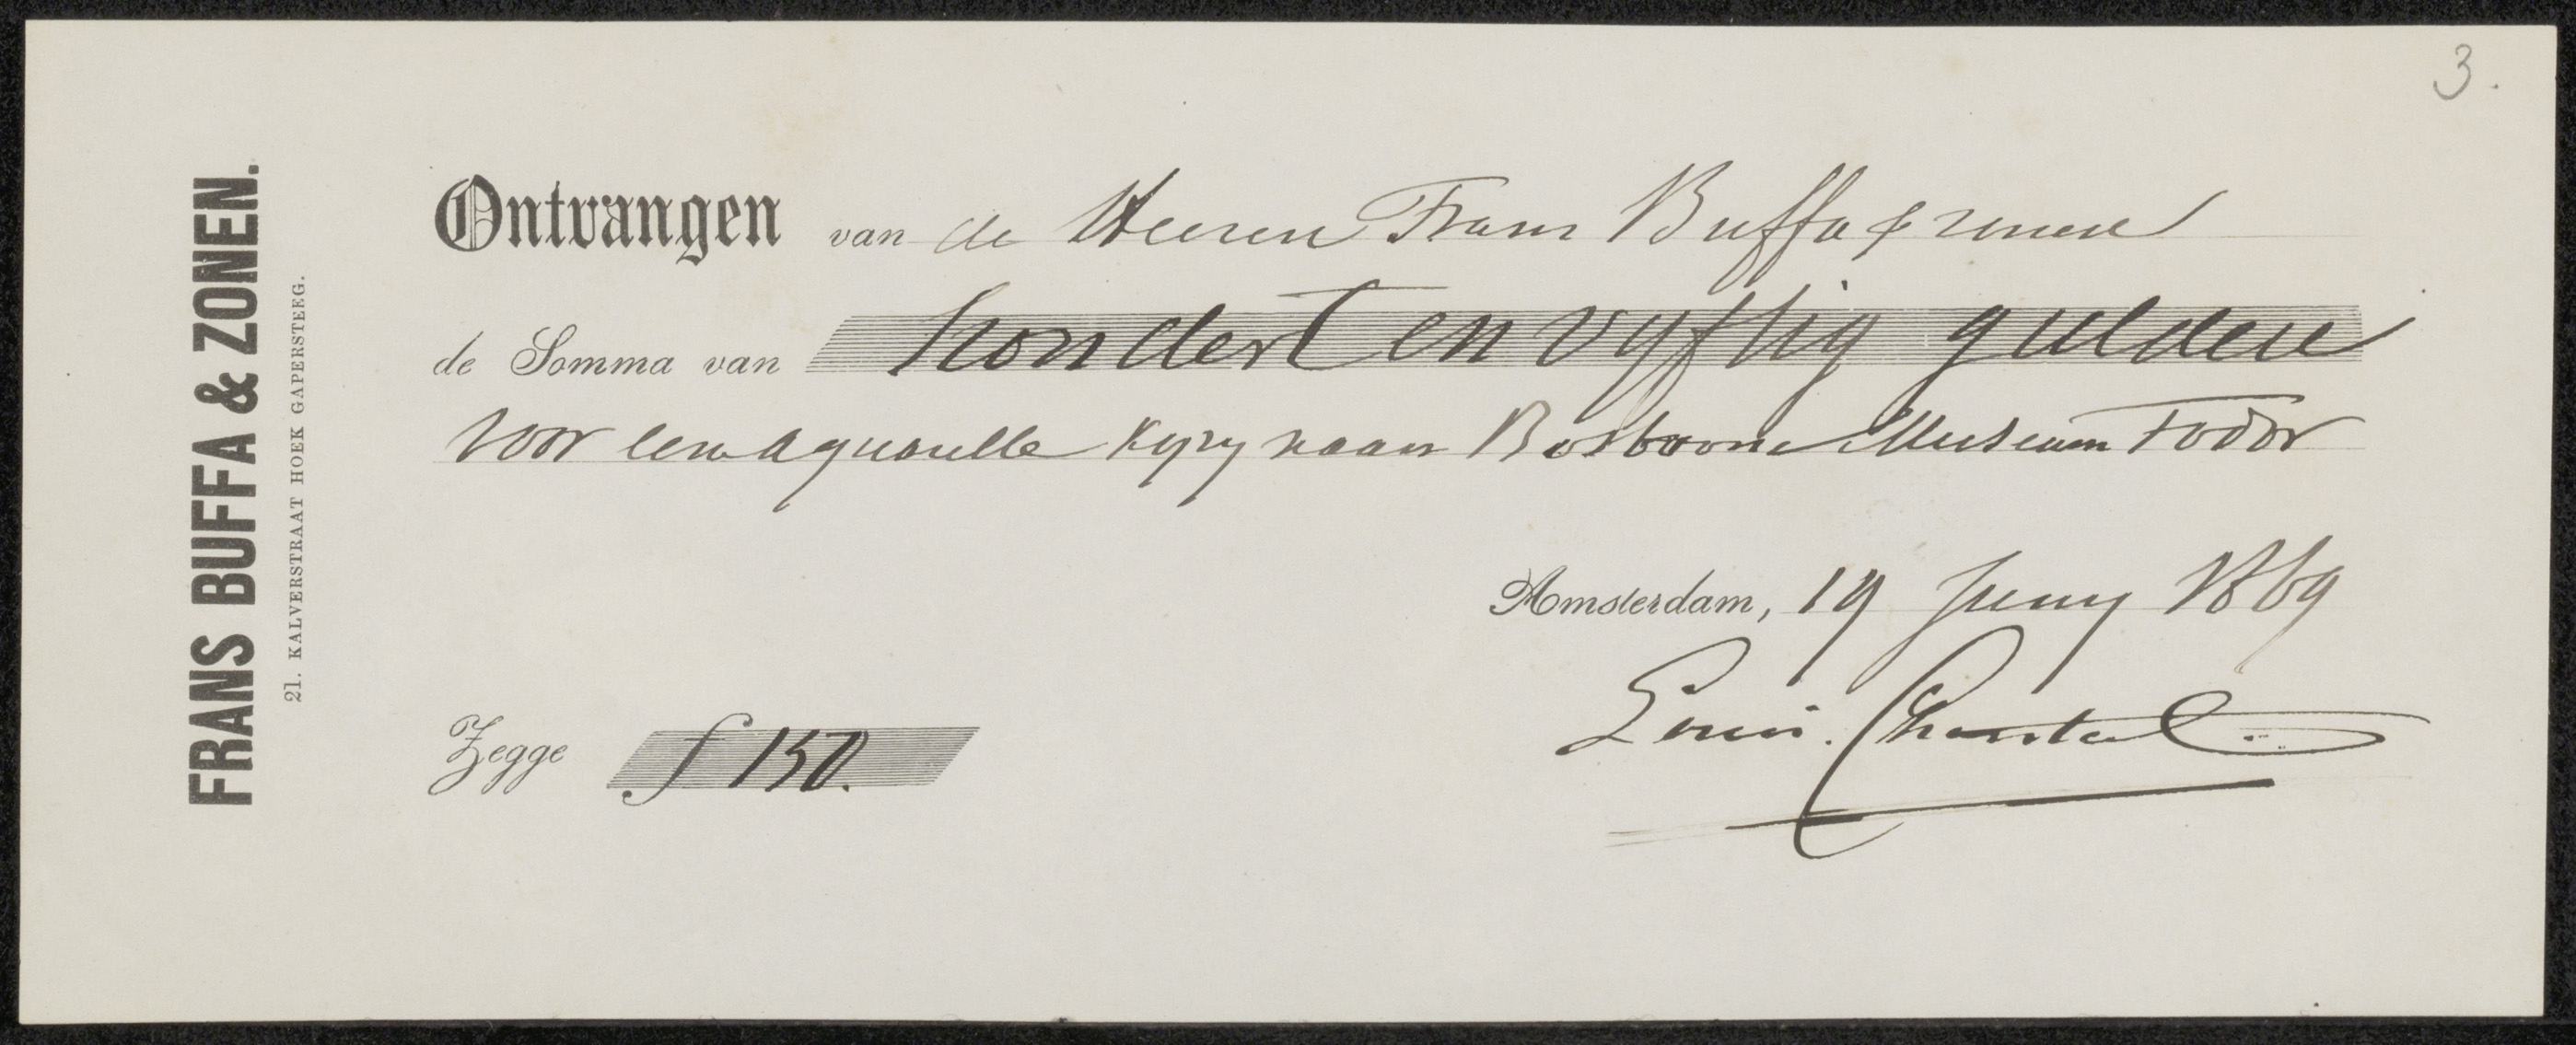 3.
FRANS BUFFA & ZONEN.
21. KALVERSTRAAT HOEK GAPERSTEEG.
Ontvangen van de Heeren Frans Buffa & zonen
de Somma van hondert en vyftig gulden
voor een aquarelle kopy naar Bosboom Museum Fodor
Amsterdam, 19 Juny 1869
Zegge f 150.
Louis. Chantal